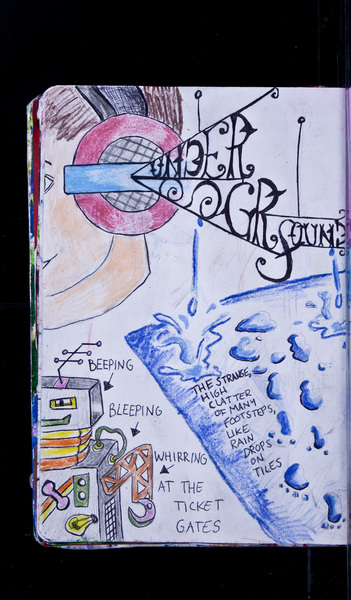 UNDER
GROUND
BEEPING
BLEEPING
WHIRRING
AT THE
TICKET
GATES
THE STRANGE,
HIGH
CLATTER
OF MANY
FOOTSTEPS,
LIKE
RAIN
DROPS
ON
TILES